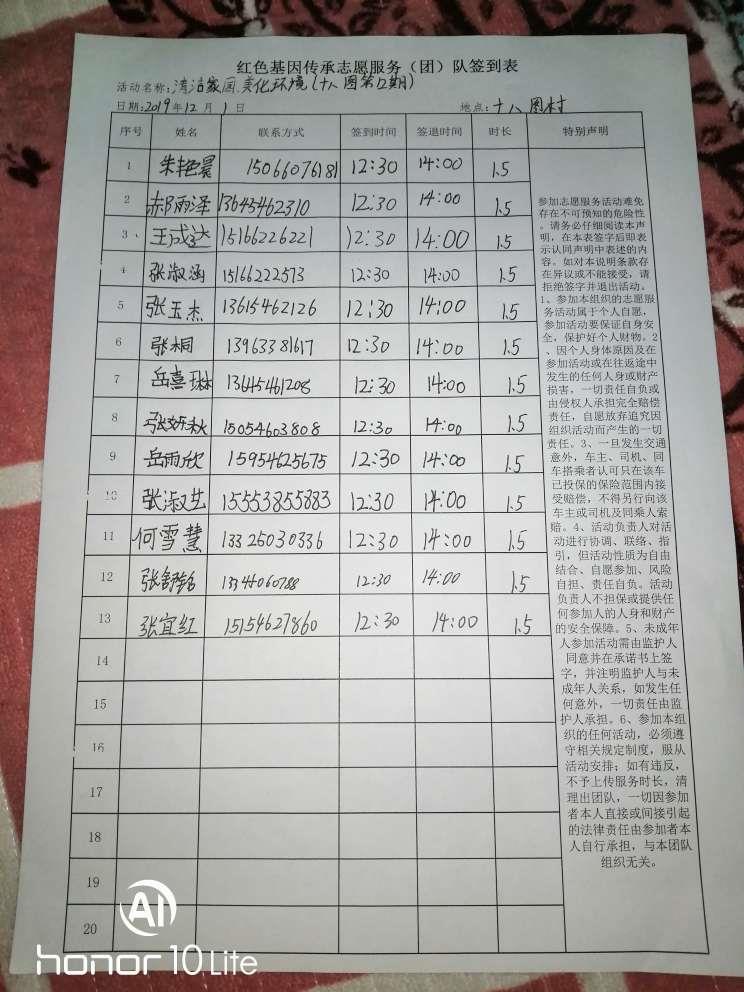 红色基因传承志愿服务（团）队签到表
活动名称:清洁家园,美化环境(十八图第12期)
日期:2019年12月1日 地点:十八图村
序号 姓名 联系方式 签到时间 签退时间 时长 特别声明
1 朱艳晨 15066076181 12:30 14:00 1.5
2 郝雨泽 13645462310 12:30 14:00 1.5
3 王成达 15166226221 12:30 14:00 1.5
4 张淑涵 15166222573 12:30 14:00 1.5
5 张玉杰 13615462126 12:30 14:00 1.5
6 张桐 13963381617 12:30 14:00 1.5
7 岳熹琳 13645461208 12:30 14:00 1.5
8 张妍秋 15054603808 12:30 14:00 1.5
9 岳雨欣 15954625675 12:30 14:00 1.5
10 张淑芸 15553855883 12:30 14:00 1.5
11 何雪慧 13325030336 12:30 14:00 1.5
12 张舒铭 12:30 14:00 1.5
13 张宜红 15154627860 12:30 14:00 1.5
14
15
16
17
18
19
20
参加志愿服务活动难免
存在不可预知的危险性
。请务必仔细阅读本声
明，在本表签字后即表
示认同声明中表述的内
容。如对本说明条款存
在异议或不能接受，请
拒绝签字并退出活动。
1、参加本组织的志愿服
务活动属于个人自愿，
参加活动要保证自身安
全，保护好个人财物。2
、因个人身体原因及在
参加活动或在往返途中
发生的任何人身或财产
损害，一切责任自负或
由侵权人承担完全赔偿
责任，自愿放弃追究因
组织活动而产生的一切
责任。3、一旦发生交通
意外，车主、司机、同
车搭乘者认可只在该车
已投保的保险范围内接
受赔偿，不得另行向该
车主或司机及同乘人索
赔。4、活动负责人对活
动进行协调、联络、指
引，但活动性质为自由
结合、自愿参加、风险
自担、责任自负。活动
负责人不担保或提供任
何参加人的人身和财产
的安全保障。5、未成年
人参加活动需由监护人
同意并在承诺书上签
字，并注明监护人与未
成年人关系，如发生任
何意外，一切责任由监
护人承担。6、参加本组
织的任何活动，必须遵
守相关规定制度，服从
活动安排；如有违反，
不予上传服务时长，清
理出团队，一切因参加
者本人直接或间接引起
的法律责任由参加者本
人自行承担，与本团队
组织无关。
AI
honor 10 Lite